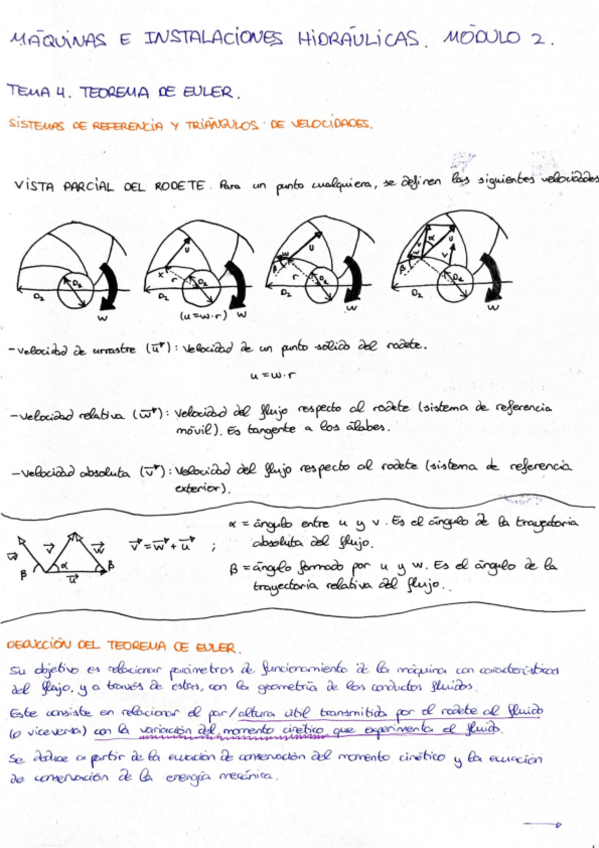 MÁQUINAS E INSTALACIONES HIDRÁULICAS. MÓDULO 2.
TEMA 4. TEOREMA DE EULER.
SISTEMAS DE REFERENCIA Y TRIÁNGULOS DE VELOCIDADES.
VISTA PARCIAL DEL RODETE. Para un punto cualquiera, se definen las siguientes velocidades
D₂ D₂ w
x u r D₂ D₂ w
(u=w·r)
β w u r D₂ w
β w α u v D₂ D₂ w
- Velocidad de arrastre (u): Velocidad de un punto sólido del rodete.
u=w·r
- Velocidad relativa (w): Velocidad del flujo respecto al rodete (sistema de referencia
móvil). Es tangente a los álabes.
- Velocidad absoluta (v): Velocidad del flujo respecto al rodete (sistema de referencia
exterior).
w β v α w β u
v = w + u ;
α = ángulo entre u y v. Es el ángulo de la trayectoria
absoluta del flujo.
β = ángulo formado por u y w. Es el ángulo de la
trayectoria relativa del flujo..
DEDUCCIÓN DEL TEOREMA DE EULER.
Su objetivo es relacionar parámetros de funcionamiento de la máquina con características
del flujo, y a través de estas, con la geometría de los conductos fluidos.
Este consiste en relacionar el par/altura útil transmitida por el rodete al fluido
(o viceversa) con la variación del momento cinético que experimenta el fluido.
Se deduce a partir de la ecuación de conservación del momento cinético y la ecuación
de conservación de la energía mecánica.